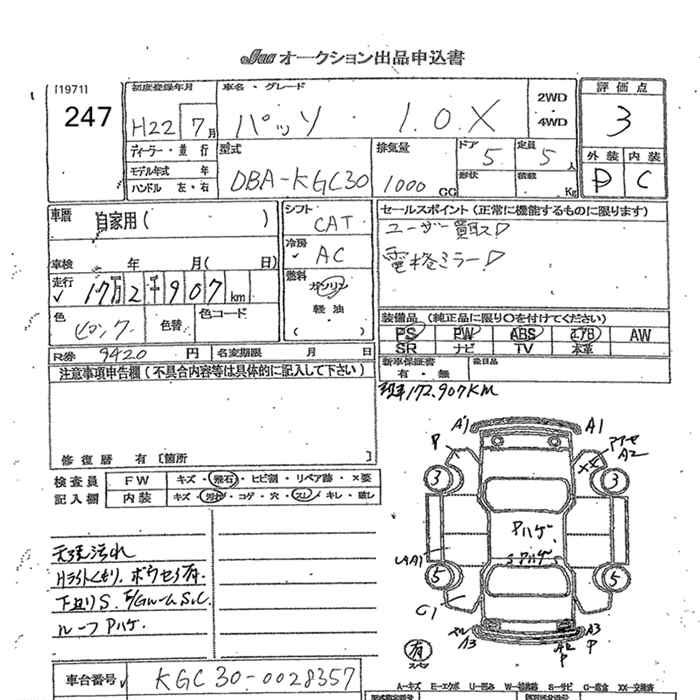 JAA オークション出品申込書
[1971]
247
初度登録年月
H22 7月
車名・グレード
パッソ ・ 1.0.X
2WD
・
4WD
評価点
3
ディーラー・並行
モデル年式 年
ハンドル 左・右
型式
DBA-KGC30
排気量
1000 CC
ドア
5
形状
定員
5人
積載
Kg
外装 内装
D C
車歴
自家用( )
シフト
CAT
セールスポイント (正常に機能するものに限ります)
ユーザー買取!
電格ミラー!
車検 年 月( 日)
冷房
AC
走行
17万2千907km
燃料
ガソリン
・
軽油
( )
色
ピンク
色替
色コード
装備品 (純正品に限り○を付けてください)
PS PW ABS エアB AW
SR ナビ TV 本革
R券 9420 円
名変期限 月 日
新車保証書
有・無
欠品品
注意事項申告欄 (不具合内容等は具体的に記入して下さい)
172.907KM
修復歴 有 [箇所 ]
検査員
記入欄
FW キズ・飛石・ヒビ割・リペア跡・×要
内装 キズ・汚れ・コゲ・穴・スレ・キレ・破レ
天張汚れ
下廻りS.
ルーフPハゲ.
A1 A1
P
A2
3 3
Pハゲ.
Sアハゲ
5 5
G1
有
A3
A2
P
A3
P
車台番号
KGC30-0028357
A-キズ E-エクボ U-凹 W-補修跡 S-サビ C-腐食 XX-交換済